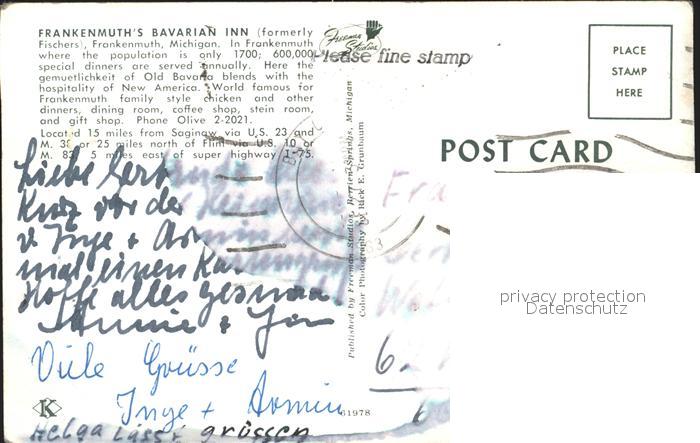 FRANKENMUTH'S BAVARIAN INN (formerly
Fischers), Frankenmuth, Michigan. In Frankenmuth
where the population is only 1700; 600,000
special dinners are served annually. Here the
gemuetlichkeit of Old Bavaria blends with the
hospitality of New America. World famous for
Frankenmuth family style chicken and other
dinners, dining room, coffee shop, stein room,
and gift shop. Phone Olive 2-2021.
Located 15 miles from Saginaw via U.S. 23 and
M. 38 or 25 miles north of Flint via U.S. 10 or
M. 83, 5 miles east of super highway 75.
Freeman Studios
Please fine stamp
PLACE
STAMP
HERE
POST CARD
Published by Freeman Studios, Berrien Springs, Michigan
Color Photography by Rick E. Grunbaum
Liebe
Kurz vor der
v. Inge +
mal einen
Hoffe alles
Viele Grüsse
Inge + Armin
Helga lässt grüssen
K
61978
Fra
6
privacy protection
Datenschutz